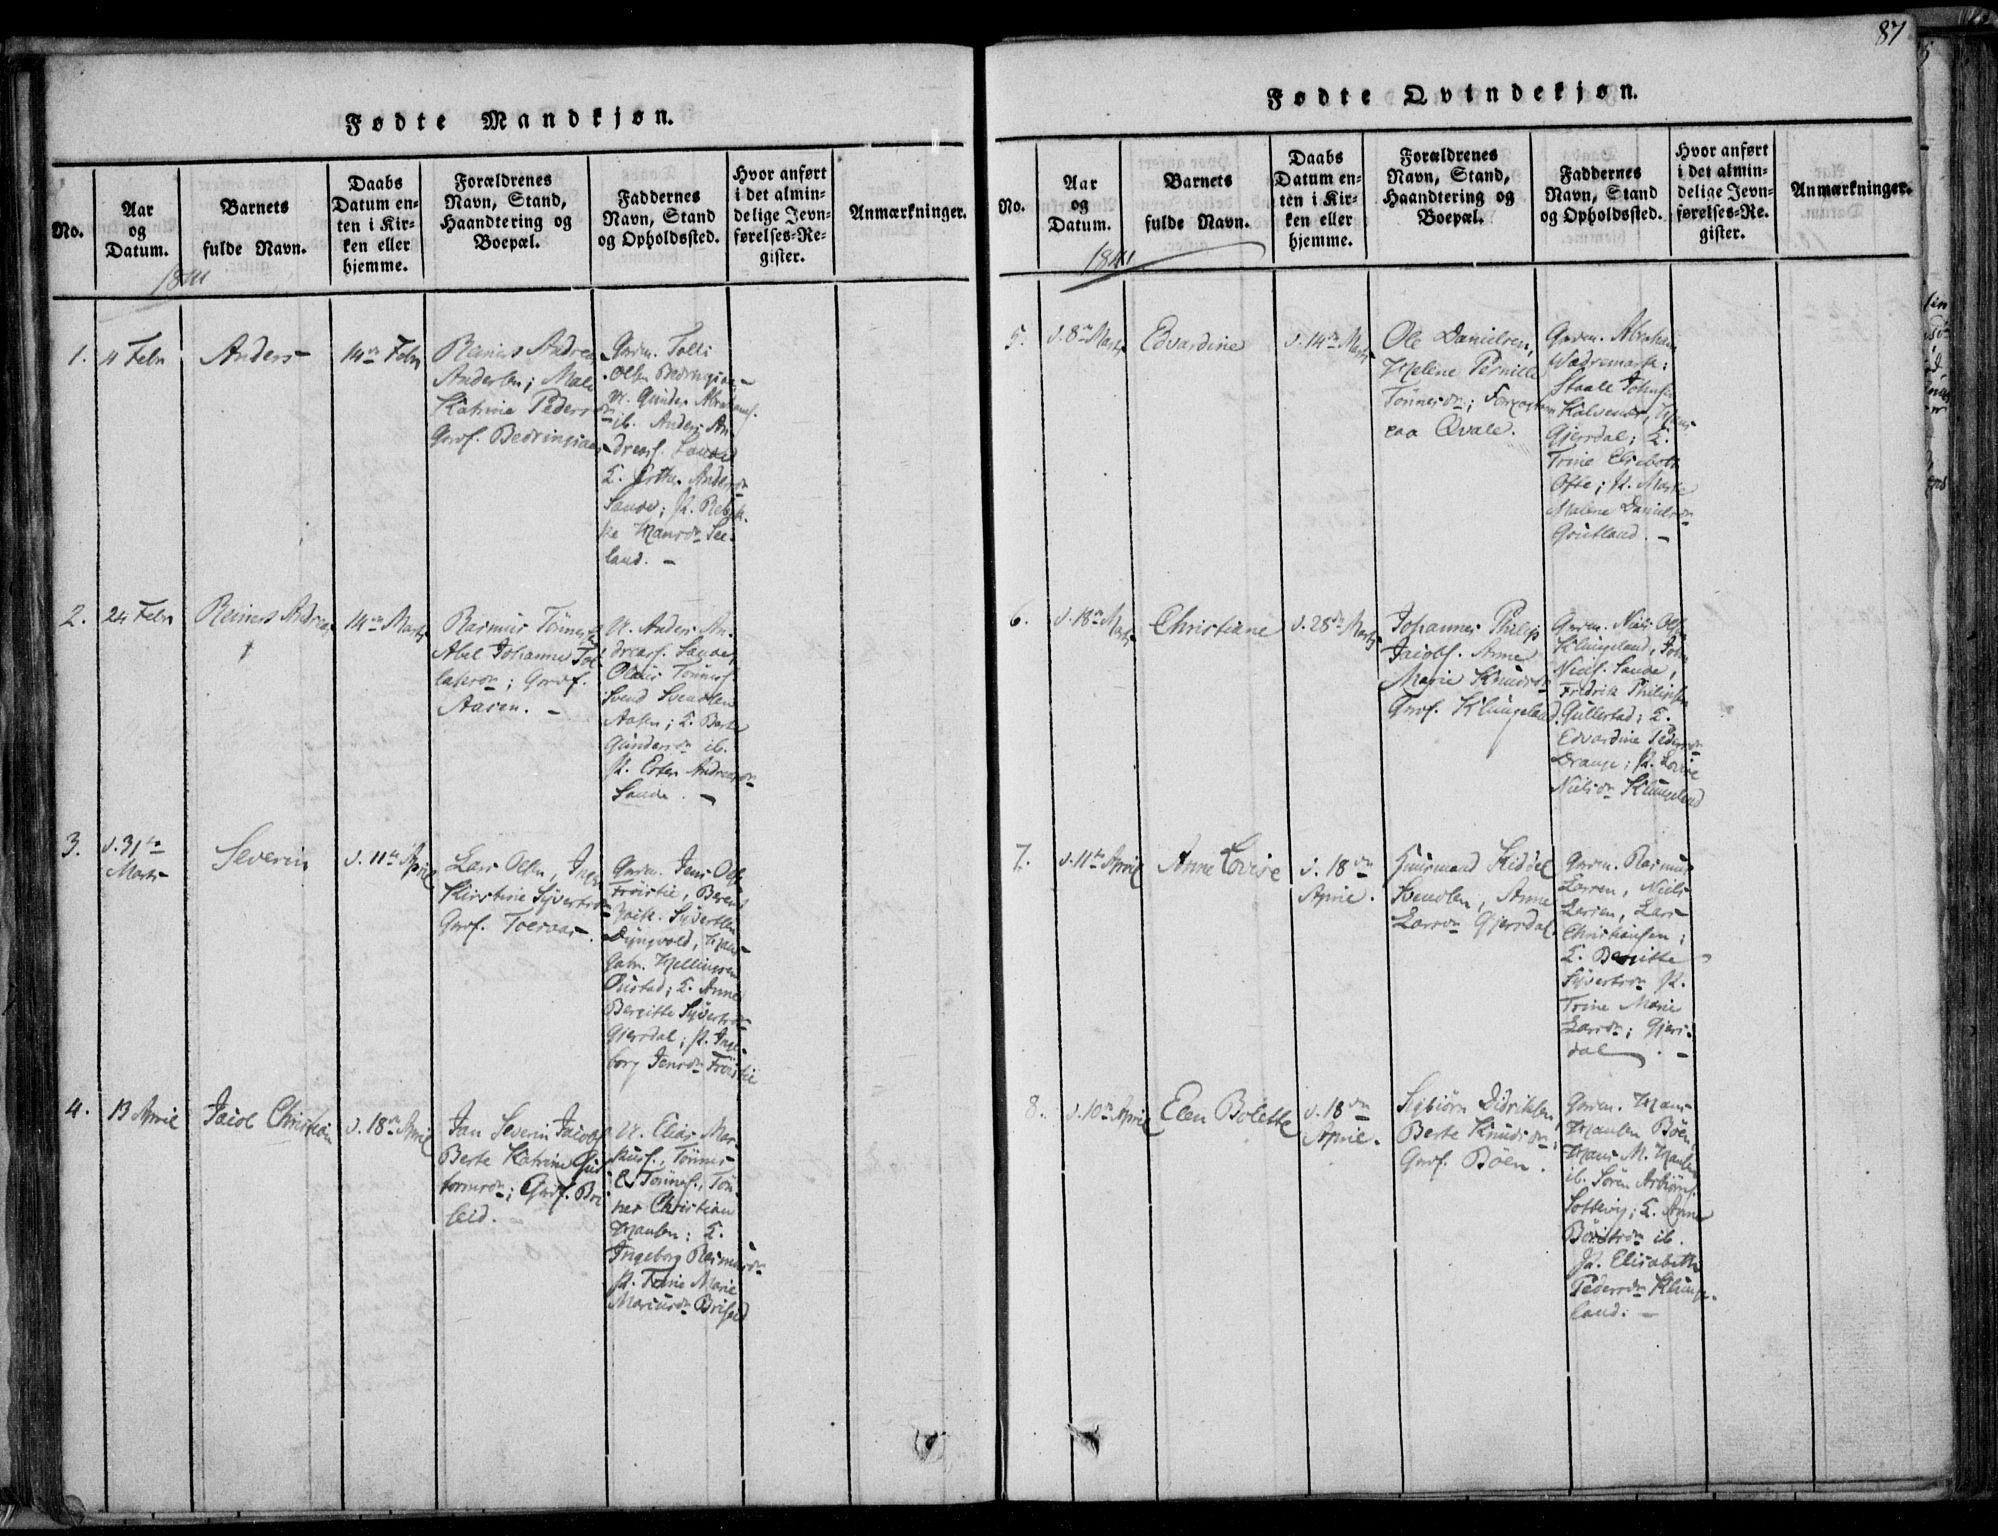 Fødte Mandkjøn.
No.
Aar
og
Datum.
Barnets
fulde Navn.
Daabs
Datum en-
ten i Kir-
ken eller
hjemme.
Forældrenes
Navn, Stand,
Haandtering og
Boepæl.
Faddernes
Navn, Stand
og Opholdssted.
Hvor anført
i det almin-
delige Jevn-
førelses-Re-
gister.
Anmærkninger.
1841
1.
11 Febr
Anders
14de Febr
Reiners Andrea
Andersen; Male
Katrine Peders
Gmf. Bedringsaas
Gaarm. Tolli
Olsen Bedringsaas
U. Gunder Abrahams.
ib. Anders An-
dreass. Sande
Sande; P. Rebek-
ke Hansdr See-
land. -
2.
24 Febr
Reiners Andreas
14de Marts
Rasmus Tønness.
Abel Johanne Tol
laksdr; Gmf.
Aasen. -
U. Anders An-
dreass. Sande,
Tønness.
Svend Svendsen
Aasen; K. Berte
Gundersdr ib.
P. Ester Andreasdr
Sande. -
3.
d. 31te
Marts
Severin
d. 11te April
Lars Olsen, Inger
Kirstine Syvertsdr
Gmf. Toesvas.
Gaarm. Jens Ols.
Frøistie, Berent
Syvertsen
Dyngvold, Hans
Gabr. Hellingsen
Anne
Bergitte Syvertsdr
Gjersdal; P. Inge-
borg Jensdr Frøistie
4.
13 April
Jacob Christian
d. 18de April
Jan Severin Jacobs.
Berte Katrine Gut
tormsdr; Gmf. Bri
seid. -
U. Elias Mar-
kuss., Tønnes
E. Tønness., Tøn-
nes Christian
Hansen; K.
Ingeborg Rasmusdr
P. Trine Marie
Marcusdr Briseid
87
Fødte Qvindekjøn.
No.
Aar
og
Datum.
Barnets
fulde Navn.
Daabs
Datum en-
ten i Kir-
ken eller
hjemme.
Forældrenes
Navn, Stand,
Haandtering og
Boepæl.
Faddernes
Navn, Stand
og Opholdssted.
Hvor anført
i det almin-
delige Jevn-
førelses-Re-
gister.
Anmærkninger.
1841
5.
d. 8de Marts
Edvardine
d. 14de Marts
Ole Danielsen,
Helene Pernille
Tønnesdr;
paa Qvale.
Gaarm. Abraham
Staale Johnsen
Kalvenes, Hans
Gjersdal; K.
Trine Elisabeth
Ofte; P. Marte
Malene Danielsdr
-
6.
d. 18de Marts
Christiane
d. 28de Marts
Johannes Philip
Jacobs. Anne
Marie Knudsdr
Gmf. Klungeland
Gaarm. Niels Ols.
Klungeland, John
Niels. Sande,
Fredrik Philipsen
Gullestad; K.
Edvardine Pedersdr
Drange; P. Lovise
Nielsdr Klungeland
7.
d. 11te April
Anne Lovise
d. 18de
April.
Huusmand Kiddel
Svendsen, Anne
Larsdr Gjersdal
Gaarm. Rasmus
Larsen, Niels
Larsen, Lars
Christiansen;
K. Bergitte
Syvertsdr P.
Trine Marie
Larsdr; Gjers-
dal. -
8.
d. 10de April
Elen Bolette
d. 18de
April.
Sigbiørn Didriksen,
Berte Knudsdr;
Gmf. Bøen.
Gaarm. Hans
Hansen Bøen,
Hans M. Hansen
ib. Søren Asbiørns.
K. Anne
ib.
P. Elisabeth
Pedersdr Klunge-
land. -